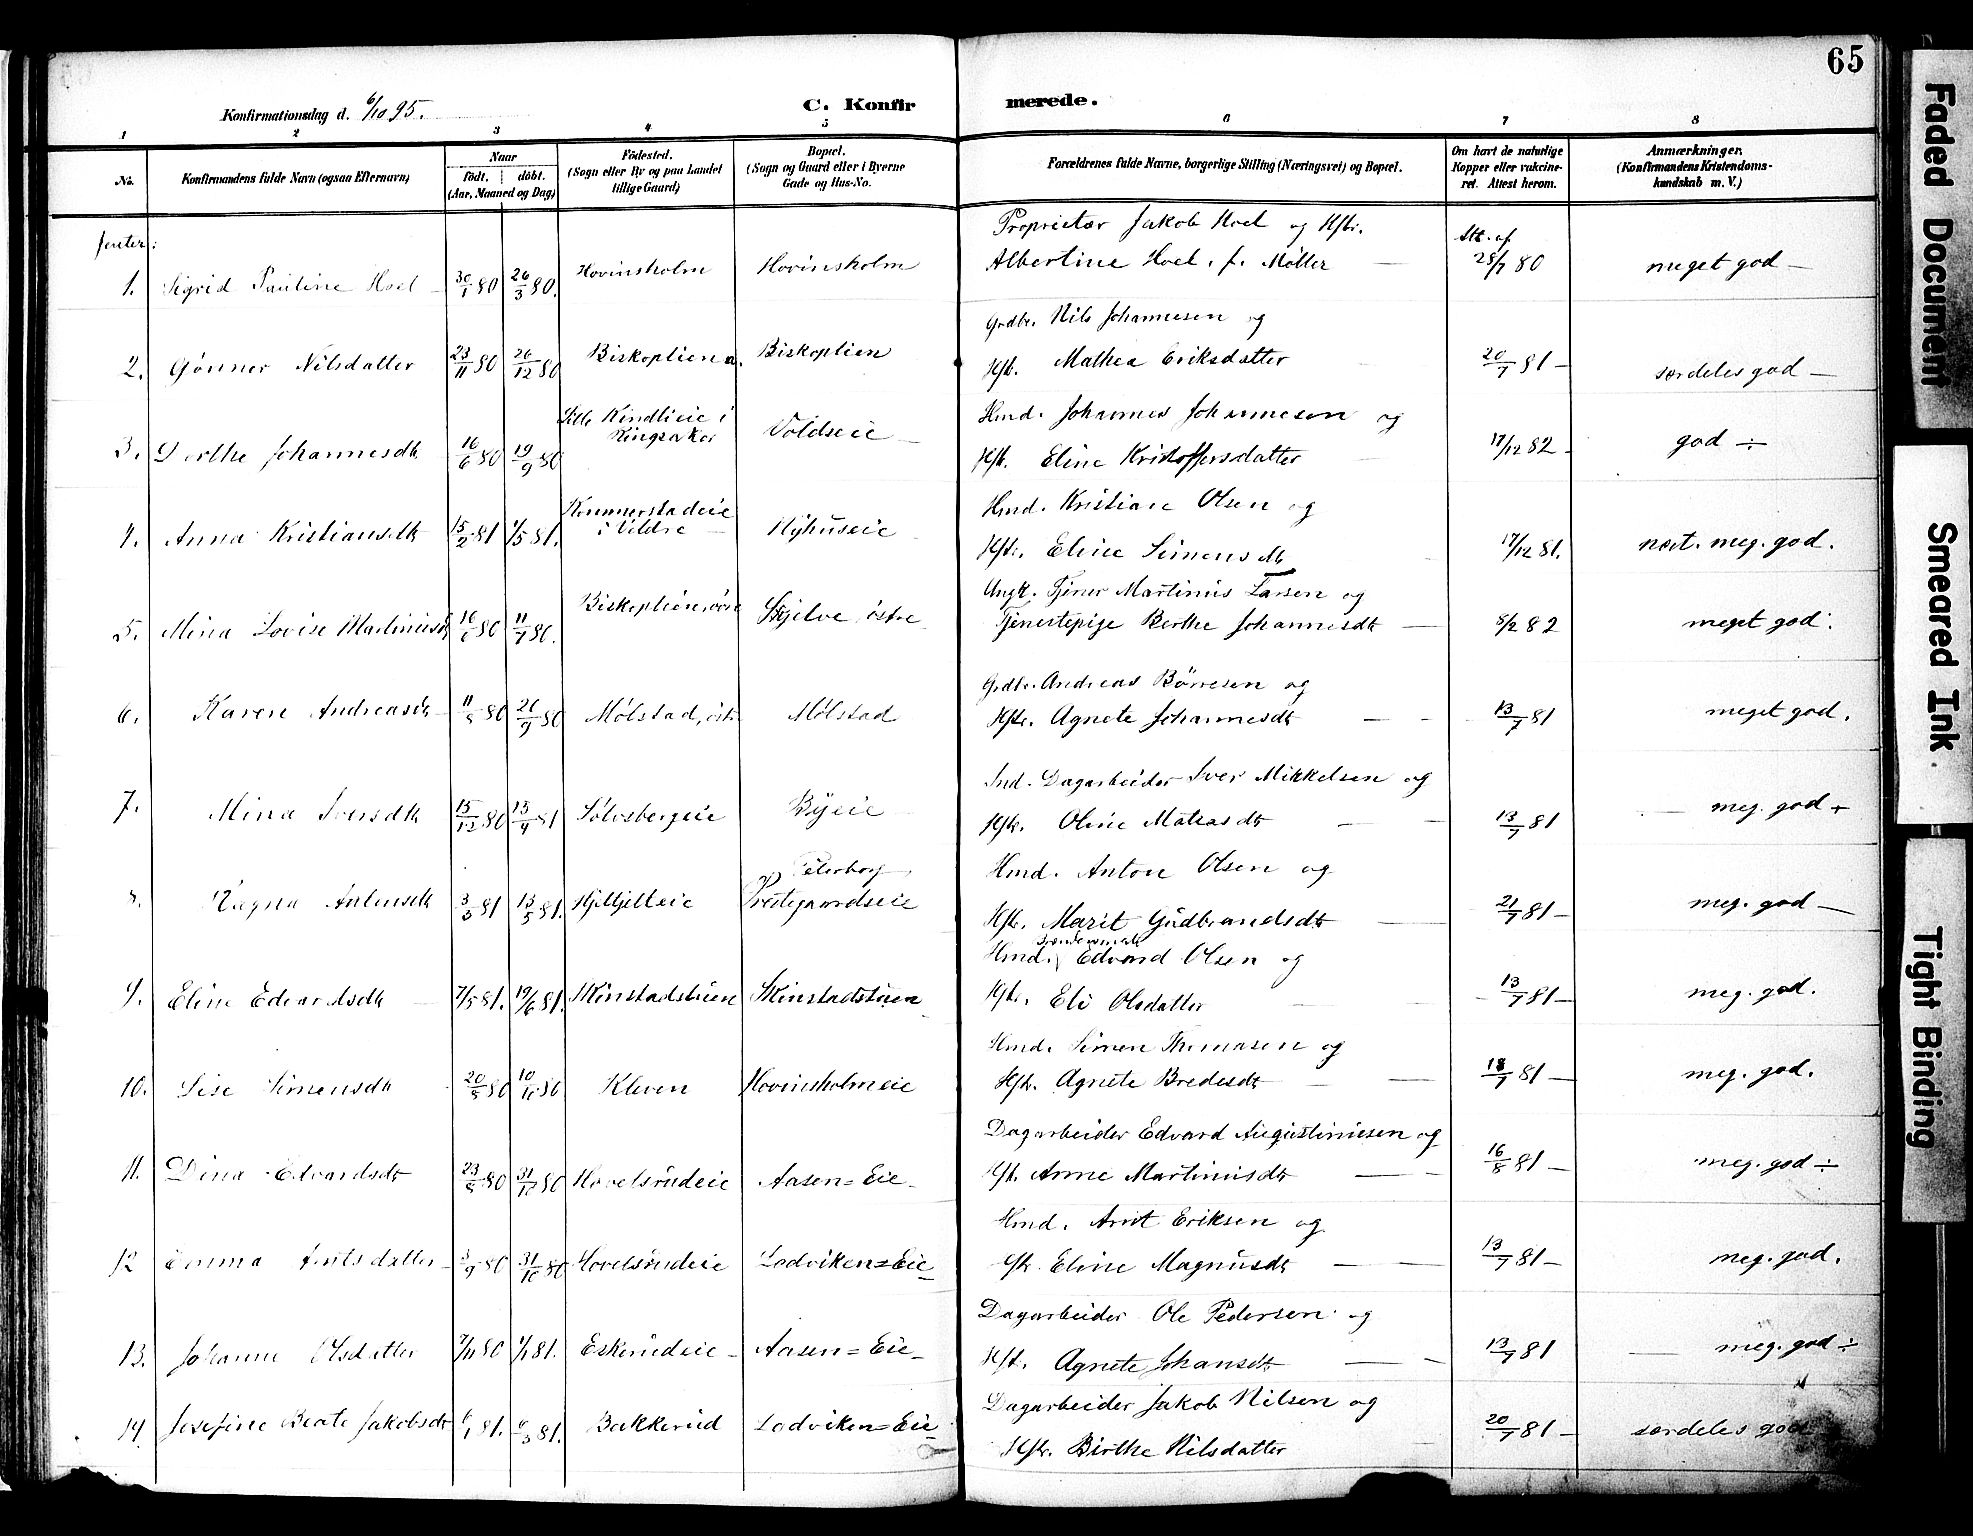 65
Konfirmationsdag d. 6/10 95.
C. Konfirmerede.
1 2 3 4 5 6 7 8
No.
Konfirmandens fulde Navn (ogsaa Efternavn)
Naar
födt. döbt.
(Aar, Maaned og Dag)
Födested.
(Sogn eller By og paa Landet
tillige Gaard)
Bopæl.
(Sogn og Gaard eller i Byerne
Gade og Hus-No.
Forældrenes fulde Navne, borgerlige Stilling (Næringsvei) og Bopæl.
Om havt de naturlige
Kopper eller vakcine-
ret. Attest herom.
Anmærkninger.
(Konfirmandens Kristendoms-
kundskab m. V.)
Jenter:
1. Sigrid Pauline Hoel 30/1 80 26/3 80. Hovinsholm Hovinsholm
Proprietær Jakob Hoel og Hstr.
Albertine Hoel. f. Møller
Att. af
28/7 80 meget god —
2. Gönner Nilsdatter 23/11 80 26/12 80 Biskoplien Biskoplien
Grdbr. Nils Johannesen og
Hstr. Mathea Eriksdatter 20/7 81 — særdeles god —
3. Dorthe Johannesdtr 16/6 80 19/9 80 Lille Kindlieie i
Ringsaker Voldseie
Hmd. Johannes Johannesen og
Hstr. Eline Kristoffersdatter 17/12 82 god ÷
4. Anna Kristiansdtr 15/2 81 1/5 81. i Veldre Nyhuseie
Hmd. Kristian Olsen og
Hstr. Eline Simensdtr 17/12 81. næst. meg. god.
5. Mina Lovise Martinusdtr 16/6 80 11/7 80. Biskoplien, Skjelve östre
Ungk. Tjener Martinus Larsen og
Tjenestepige Berthe Johannesdtr 8/2 82 meget god.
6. Karen Andreasdtr 11/8 80 26/9 80 Mølstad, östr. Mølstad
Grdbr. Andreas Börresen og
Hstr. Agnete Johannesdtr 13/7 81 meget god.
7. Mina Iversdtr 15/12 80 13/4 81 Sølvsbergeie Byeie
Ind. Dagarbeider Iver Mikkelsen og
Hstr. Oline Mateasdtr 13/7 81 meg. god ÷
8. Ragna Antonsdtr 3/3 81 13/5 81. Peterborg,
Prestegaardseie
Hmd. Anton Olsen og
Hstr. Marit Gudbrandsdtr 21/7 81 — meg. god —
9. Eline Edvardsdtr 7/5 81. 19/6 81. Skinstadstuen Skinstadstuen
Hmd. Edvard Olsen og
Hstr. Eli Olsdatter 13/7 81 — meg. god.
10. Lise Simensdtr 20/8 80 10/10 80 Kleven Hovinsholmeie
Hmd. Simen Thomasen og
Hstr. Agnete Bredesdtr 18/7 81 — meg. god.
11. Dina Edvardsdtr 23/8 80 31/10 80 Hovelsrudeie Aasen = Eie
Dagarbeider Edvard Augustinusen og
Hstr. Anne Martinusdtr 16/8 81 — meg. god ÷
12 Emma Antsdatter 3/9 80 31/10 80 Hovelsrudeie Lodviken = Eie
Hmd. Arnt Eriksen og
Hstr. Eline Magnusdtr 13/7 81 — meg. god.
13. Johanne Olsdatter 7/11 80 1/1 81. Eskerudeie Aasen = Eie
Dagarbeider Ole Pedersen og
Hstr. Agnete Johansdtr 13/7 81 meg. god ÷
14 Josefine Beate Jakobsdtr 6/1 81. 6/3 81. Bakkerud Lodviken = Eie
Dagarbeider Jakob Nilsen og
Hstr. Birthe Nilsdatter 20/7 81 — særdeles god
Faded Document
Smeared Ink
Tight Binding